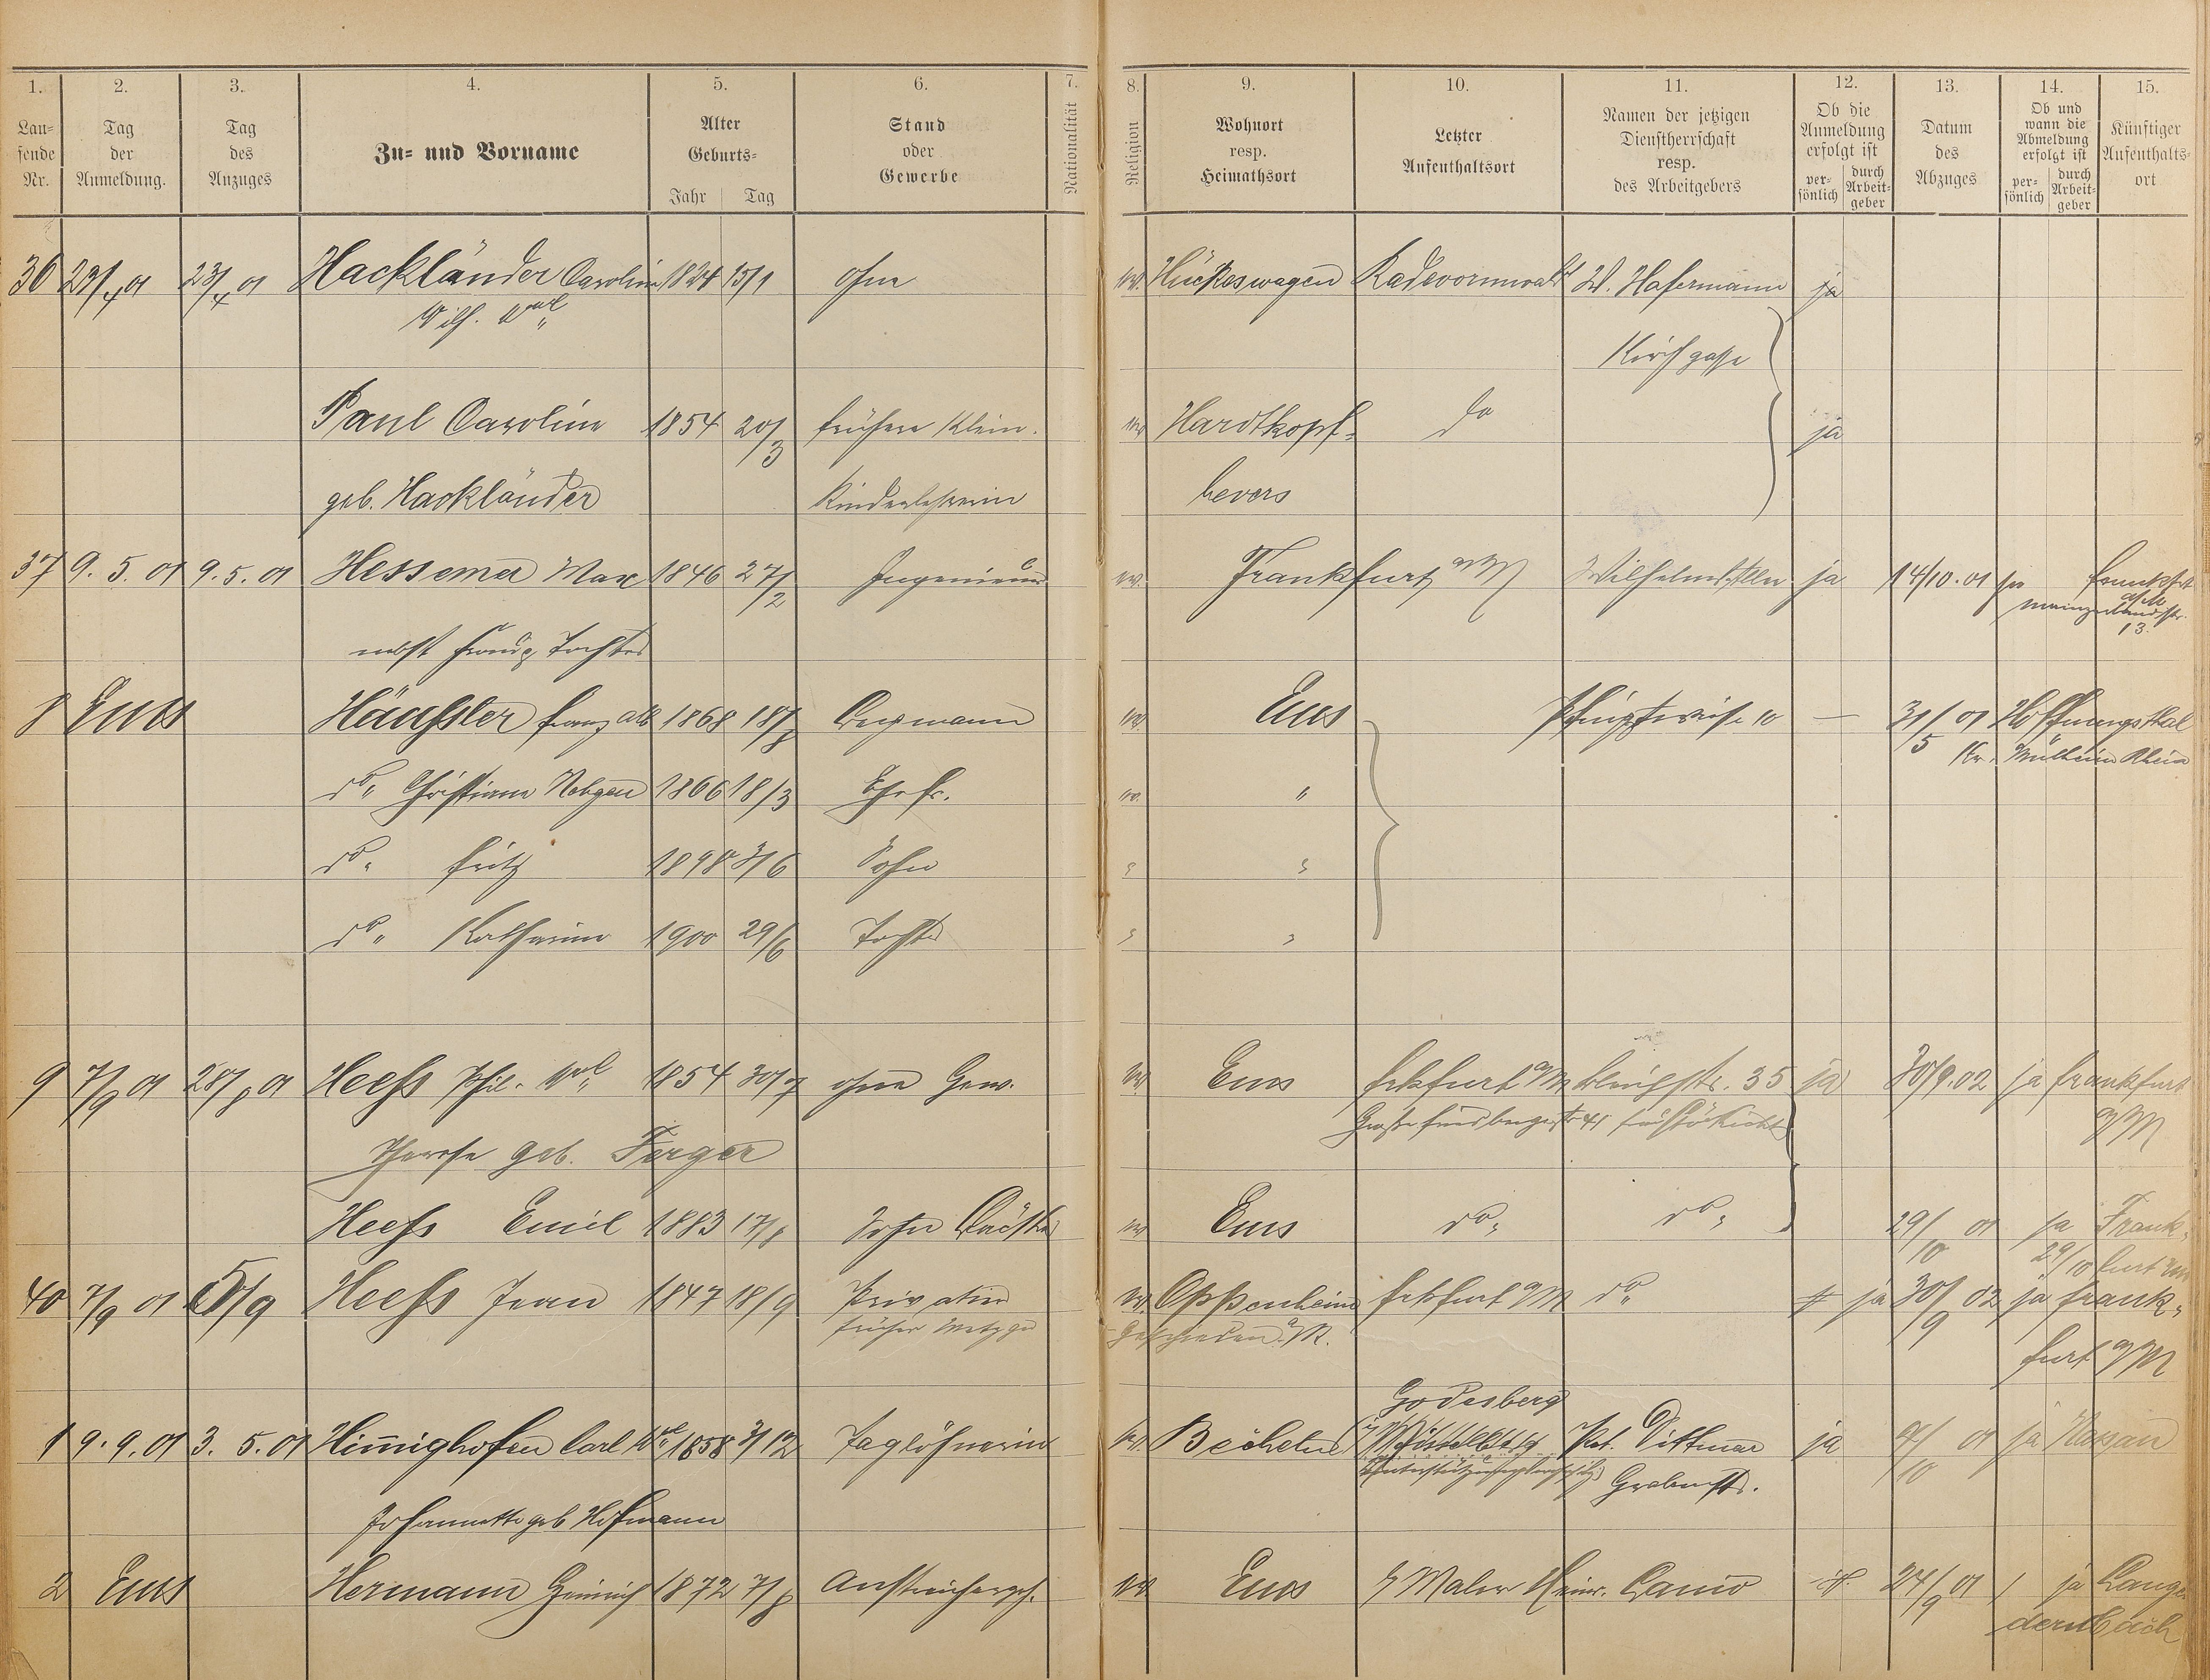 1. 2. 3. 4. 5. 6. 7. 8. 9. 10. 11. 12. 13. 14. 15.
Laufende Nr.
Tag der Anmeldung.
Tag des Anzuges
Zu- und Vorname
Alter
Geburts-
Jahr Tag
Stand oder Gewerbe
Nationalität
Religion
Wohnort resp. Heimathsort
Letzter Aufenthaltsort
Namen der jetzigen Dienstherrschaft resp. des Arbeitgebers
Ob die Anmeldung erfolgt ist
persönlich durch Arbeitgeber
Datum des Abzuges
Ob und wann die Abmeldung erfolgt ist
persönlich durch Arbeitgeber
Künftiger Aufenthaltsort
36 23/4 01 23/4 01 Hackländer Caroline 1824 15/1 ohne Hückeswagen Radevormwald W. Hafermann ja
Wilh. Wwe
Kirchgasse
Paul Caroline 1854 20/3 frühere Klein- Hardtkopf- do ja
geb. Hackländer Kinderlehrerin bevers
37 9. 5. 01 9. 5. 01 Hessemer Max 1846 27/2 Ingenieur Frankfurt a/M Wilhelmsallee ja 14/10. 01 ja Frankfurt a/M
Mainzerlandstr. 13.
nebst Frau & Tochter
8 Ems Häußler Franz Alb 1868 18/8 Bergmann Ems 10 — 31/5 01 Hoffnungsthal
Kr. Mülheim Rhein
do " Christiane Nebgen 1866 18/3 Ehefr. "
do " Fritz 1898 3/6 Sohn "
do " Katharine 1900 29/6 Tochter "
9 7/9 01 28/8 01 Heeß Phil. Wwe 1854 30/7 ohne Gew. Ems Frkfurt a/M 35 ja 30/9. 02 ja Frankfurt
a/M
Therese geb. Ferger
Heeß Emil 1883 17/8 Sohn Ems do " do " 29/10 01 ja Frank-
29/10 furt
40 7/9 01 5/9 Heeß Jean 1847 18/9 Privatier Oppenheim Frkfurt a/M do " ja 30/9 02 ja Frank-
früher Metzger Geschieden a/R. furt a/M
Godesberg
1 9. 9. 01 3. 5. 01 Himighofen Carl Wwe 1858 3/12 Taglöhnerin Becheln Pet. Dittmar ja 9/10 01 ja Nassau
Grabenstr.
Johannette geb Hofmann
2 Ems Hermann Heinrich 1872 7/8 Anstreichergeh. Ems Maler Heinr. 24/9 01 ja Langen
dernbach